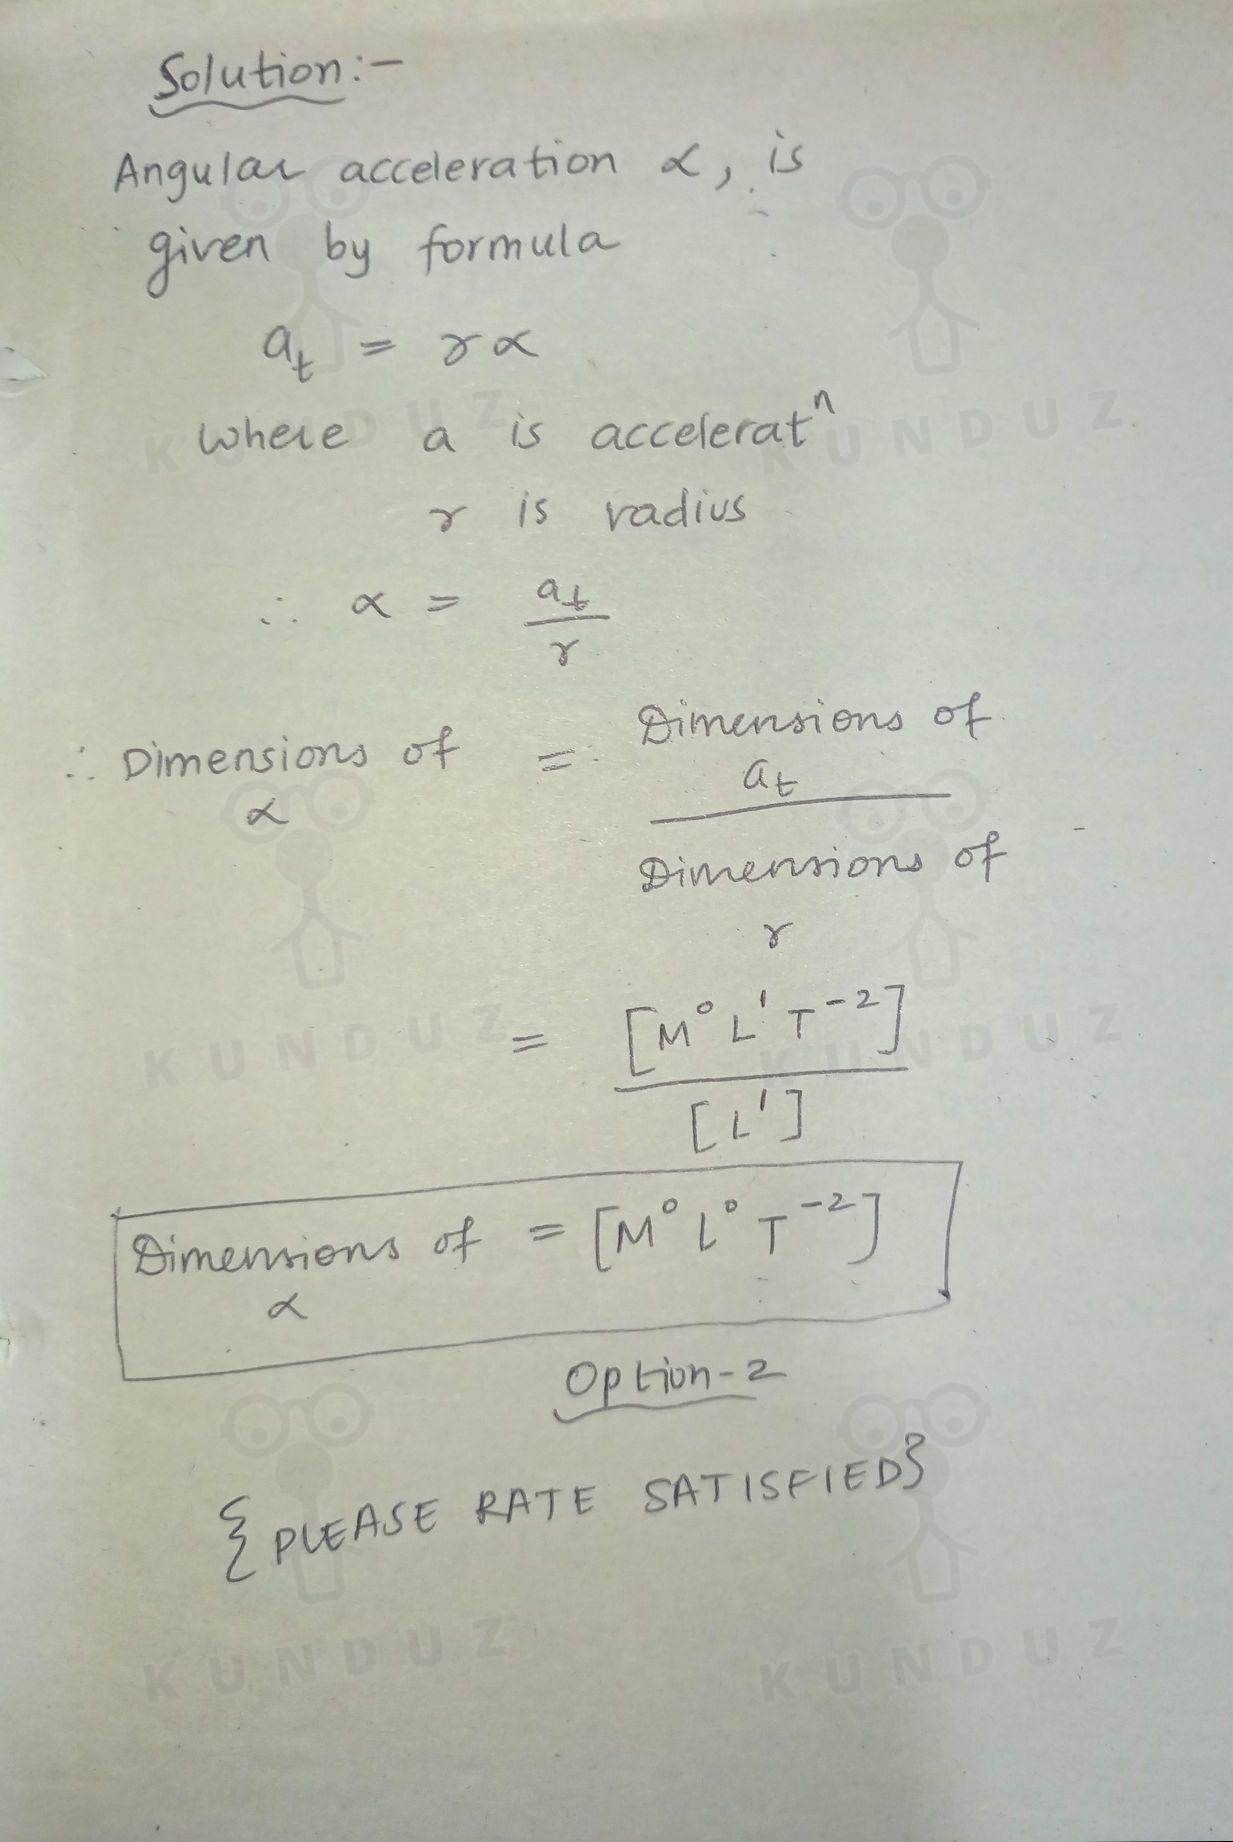 Solution:-
Angular acceleration α, is
given by formula
a_t = rα
where a is acceleratⁿ
r is radius
∴ α = a_t / r
∴ Dimensions of α = Dimensions of a_t / Dimensions of r
= [M⁰ L¹ T⁻²] / [L¹]
Dimensions of α = [M⁰ L⁰ T⁻²]
Option-2
{PLEASE RATE SATISFIED}
KUNDUZ
KUNDUZ
KUNDUZ
KUNDUZ
KUNDUZ
KUNDUZ